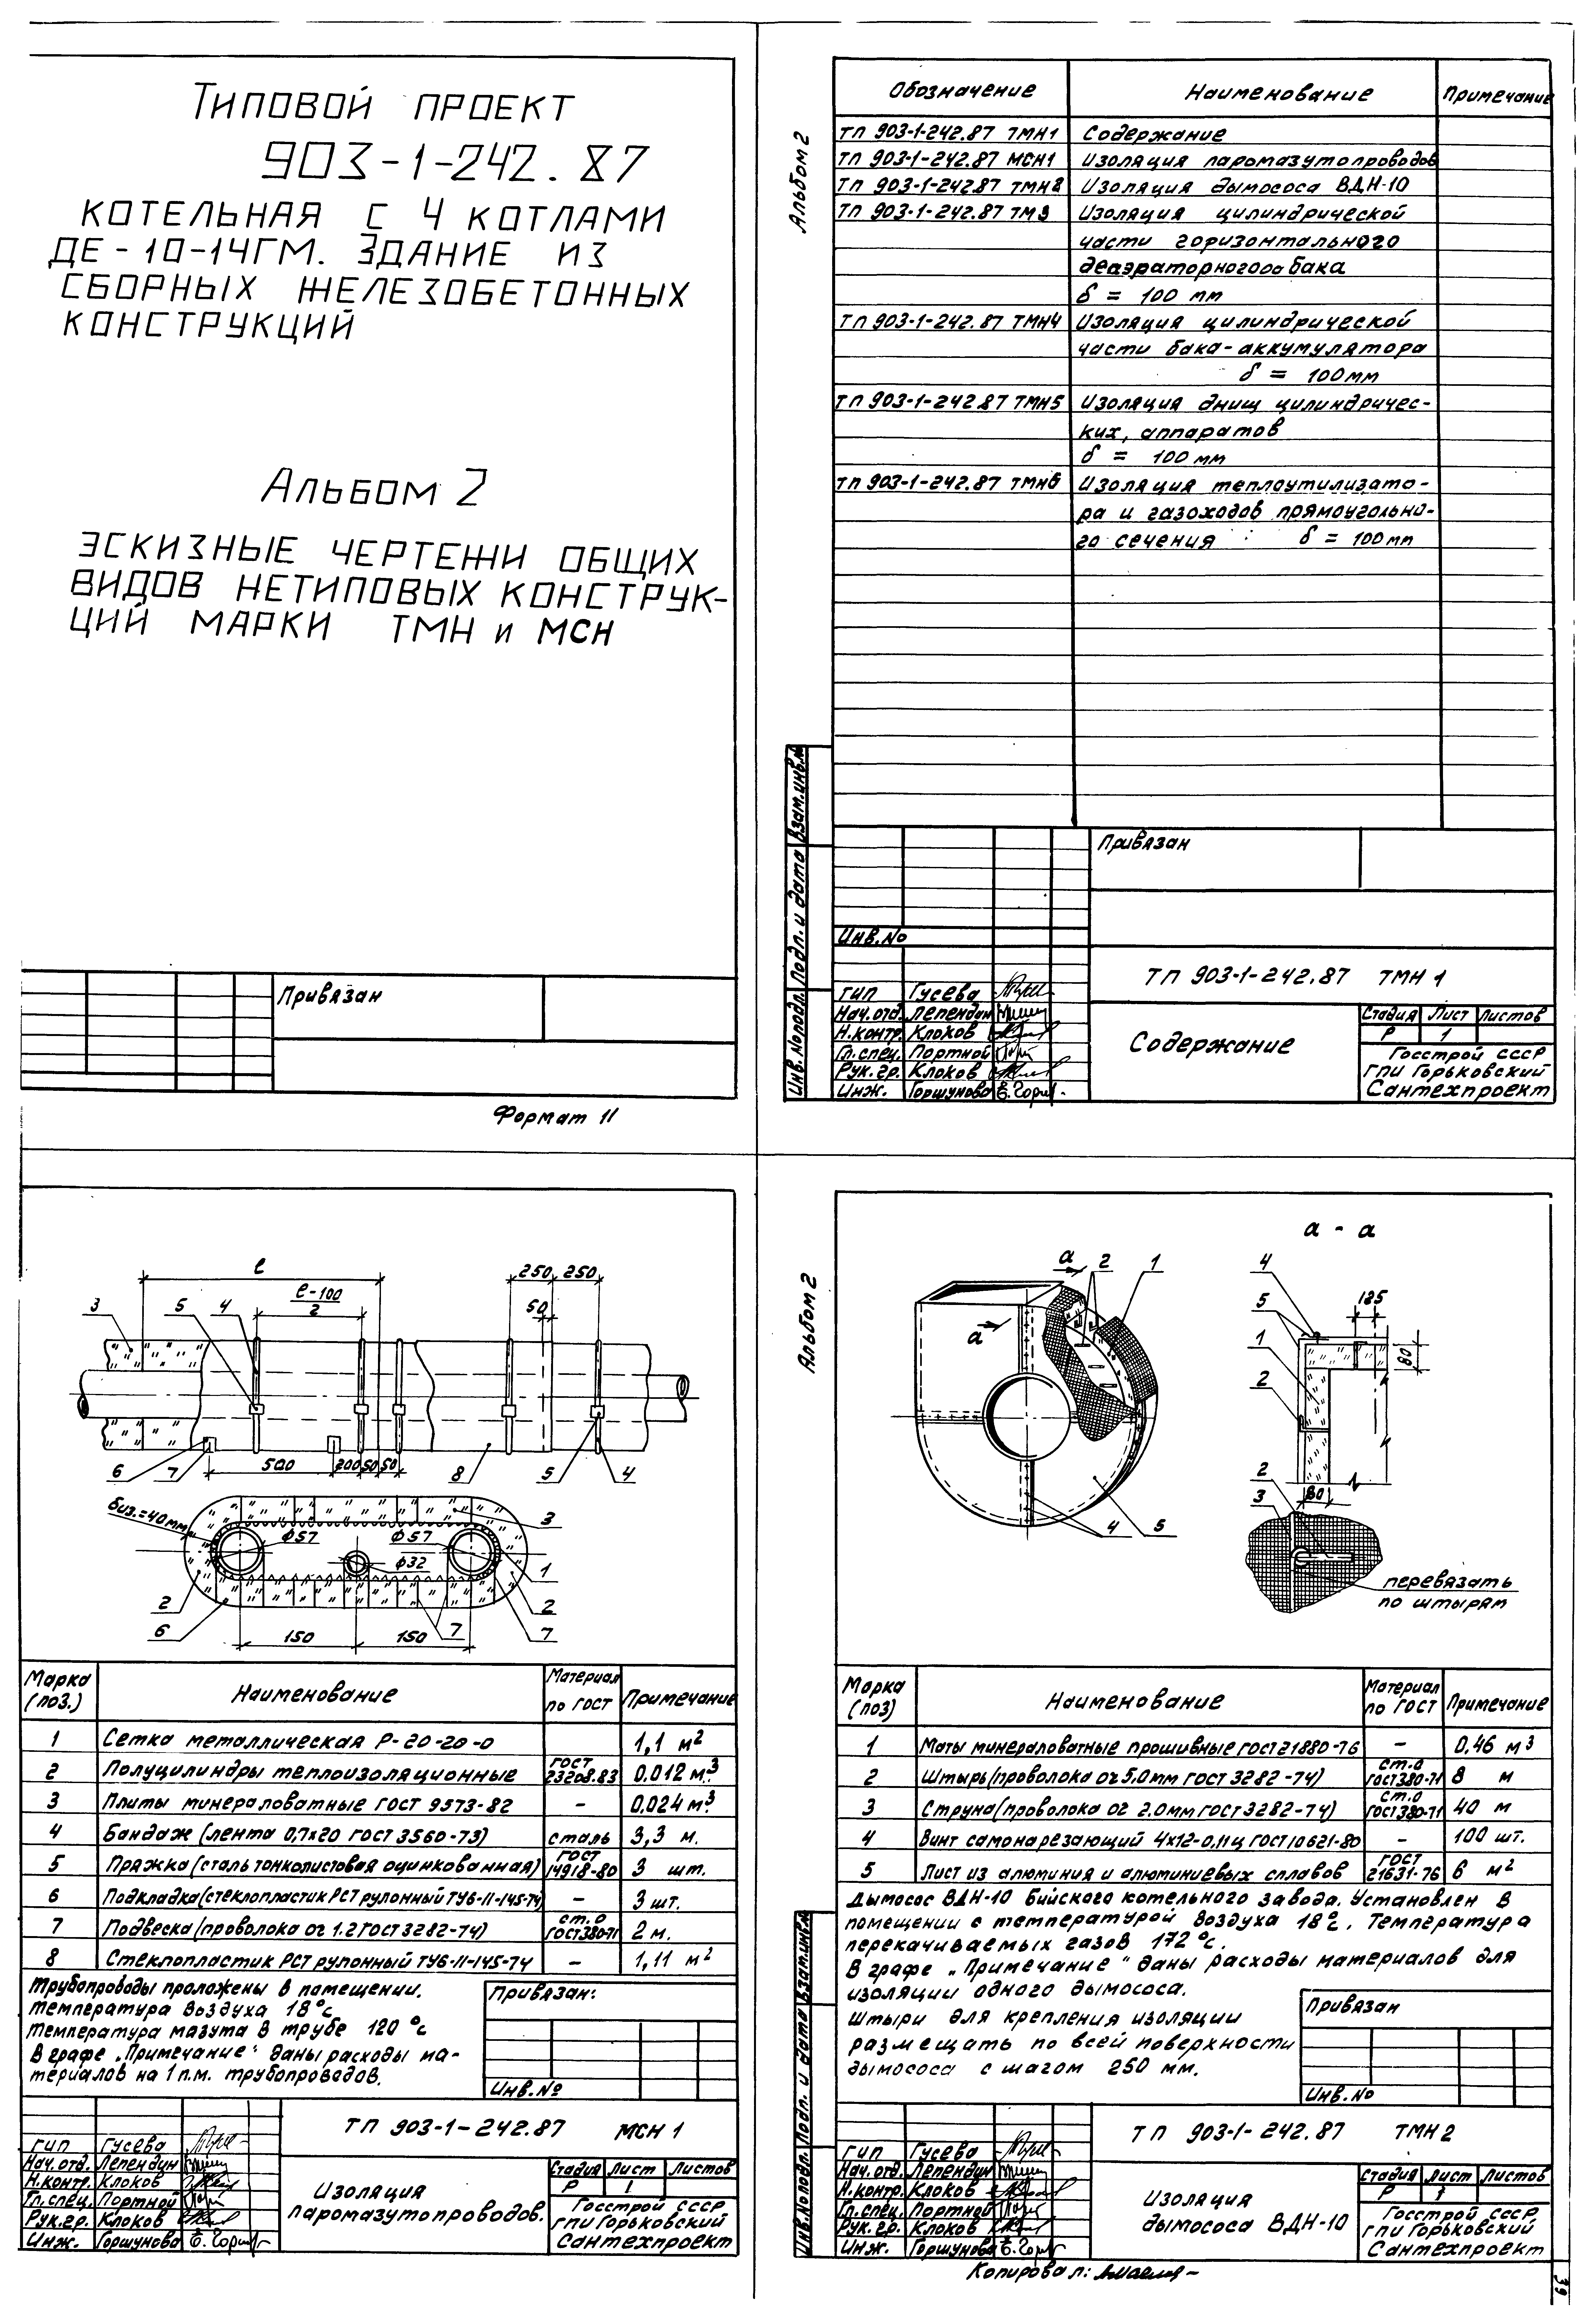 Типовой проект
903-1-242.87
котельная с 4 котлами
ДЕ-10-14ГМ. Здание из
сборных железобетонных
конструкций
Альбом 2
эскизные чертежи общих
видов нетиповых конструк-
ций марки ТМН и МСН
Привязан
Формат 11
Альбом 2
Обозначение Наименование Примечание
ТП 903-1-242.87 ТМН1 Содержание
ТП 903-1-242.87 МСН1 Изоляция паромазутопроводов
ТП 903-1-242.87 ТМН2 Изоляция дымососа ВДН-10
ТП 903-1-242.87 ТМ3 Изоляция цилиндрической
части горизонтального
деаэраторного бака
δ = 100 мм
ТП 903-1-242.87 ТМН4 Изоляция цилиндрической
части бака-аккумулятора
δ = 100мм
ТП 903-1-242.87 ТМН5 Изоляция днищ цилиндричес-
ких, аппаратов
δ = 100 мм
ТП 903-1-242.87 ТМН6 Изоляция теплоутилизато-
ра и газоходов прямоугольно-
го сечения δ = 100мм
Привязан
Инв.№
ТП 903-1-242.87 ТМН 1
ГИП Гусева
Нач.отд. Лепендин
Н.контр. Клоков
Гл.спец. Портной
Рук.гр. Клоков
Инж. Горшунова
Содержание
Стадия Лист Листов
Р 1
Госстрой СССР
ГПИ Горьковский
Сантехпроект
Инв.№подл. Подл. и дата Взам.инв.№
ℓ
250 250
ℓ-100
2
50
3 5 4
6 7 500 200 50 50 8 5 4
δиз.=40мм
ϕ57 ϕ57 ϕ32
3
1
2 2
6 7 7
150 150
Марка (поз.) Наименование Материал по ГОСТ Примечание
1 Сетка металлическая Р-20-20-0 1,1 м²
2 Полуцилиндры теплоизоляционные ГОСТ 23208.83 0.012 м³
3 Плиты минераловатные ГОСТ 9573-82 – 0.024 м³
4 Бандаж (лента 0,7х20 ГОСТ 3560-73) сталь 3,3 м.
5 Пряжка (сталь тонколистовая оцинкованная) ГОСТ 14918-80 3 шт.
6 Подкладка (стеклопластик РСТ рулонный ТУ6-11-145-74 – 3 шт.
7 Подвеска (проволока оч 1.2 ГОСТ 3282-74) ст.0 ГОСТ380-71 2 м.
8 Стеклопластик РСТ рулонный ТУ6-11-145-74 – 1,11 м²
Трубопроводы проложены в помещении.
температура воздуха 18°с
температура мазута в трубе 120 °с
В графе „Примечание" даны расходы ма-
териалов на 1 п.м. трубопроводов.
Привязан:
Инв.№
ТП 903-1-242.87 МСН 1
ГИП Гусева
Нач.отд. Лепендин
Н.контр. Клоков
Гл.спец. Портной
Рук.гр. Клоков
Инж. Горшунова
Изоляция
паромазутопроводов.
Стадия Лист Листов
Р 1
Госстрой СССР
ГПИ Горьковский
Сантехпроект
Альбом 2
а - а
а 2 1
а
4 5
4
5
125
1
80
2
80
2
3
перевязать
по штырям
Марка (поз) Наименование Материал по ГОСТ Примечание
1 Маты минераловатные прошивные ГОСТ 21880-76 – 0,46 м³
2 Штырь (проволока оч 5.0мм ГОСТ 3282-74) ст.0 ГОСТ380-71 8 м
3 Струна (проволока ог 2.0мм ГОСТ 3282-74) ст.0 ГОСТ380-71 40 м
4 Винт самонарезающий 4х12-0.11ц ГОСТ 10621-80 – 100 шт.
5 Лист из алюминия и алюминиевых сплавов ГОСТ 21631-76 6 м²
Дымосос ВДН-10 Бийского котельного завода. Установлен в
помещении с температурой воздуха 18°с. Температура
перекачиваемых газов 172 °с.
В графе „Примечание" даны расходы материалов для
изоляции одного дымососа.
Штыри для крепления изоляции
размещать по всей поверхности
дымососа с шагом 250 мм.
Привязан
Инв.№
ТП 903-1-242.87 ТМН 2
ГИП Гусева
Нач.отд. Лепендин
Н.контр. Клоков
Гл.спец. Портной
Рук.гр. Клоков
Инж. Горшунова
Изоляция
дымососа ВДН-10
Стадия Лист Листов
Р 1
Госстрой СССР
ГПИ Горьковский
Сантехпроект
Инв.№подл. Подл. и дата Взам.инв.№
Копировал:
39